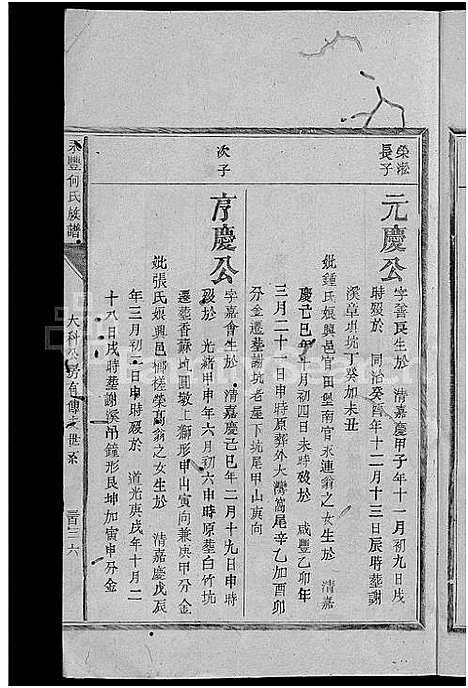 榮崧
長子
元慶公
字善良生於 清嘉慶甲子年十一月初九日戌
時歿於 同治癸酉年十二月十三日辰時葬謝
溪章垻坑丁癸加未丑
妣鍾氏娘興邑官田堡南官永連翁之女生於 清嘉
慶己巳年十月初四日未時歿於 咸豐乙卯年
三月二十一日申時原葬外大灣窩尾辛乙加酉卯
分金遷葬謝坑老屋下坑尾甲山庚向
次子
序慶公
字嘉會生於 清嘉慶己巳年二月十九日申時
歿於 光緒甲申年六月初六申時原葬白竹坑
遷葬香蘇坑圓墩上獅形甲山寅向兼庚甲分金
妣張氏娘興邑椰槎榮高翁之女生於 清嘉慶戊辰
年三月初三日申時歿於 道光庚戌年十月二
十八日戌時葬謝溪吊鐘形艮坤加寅申分金
永豐何氏族譜
大科公房自傳之世系
三百三六